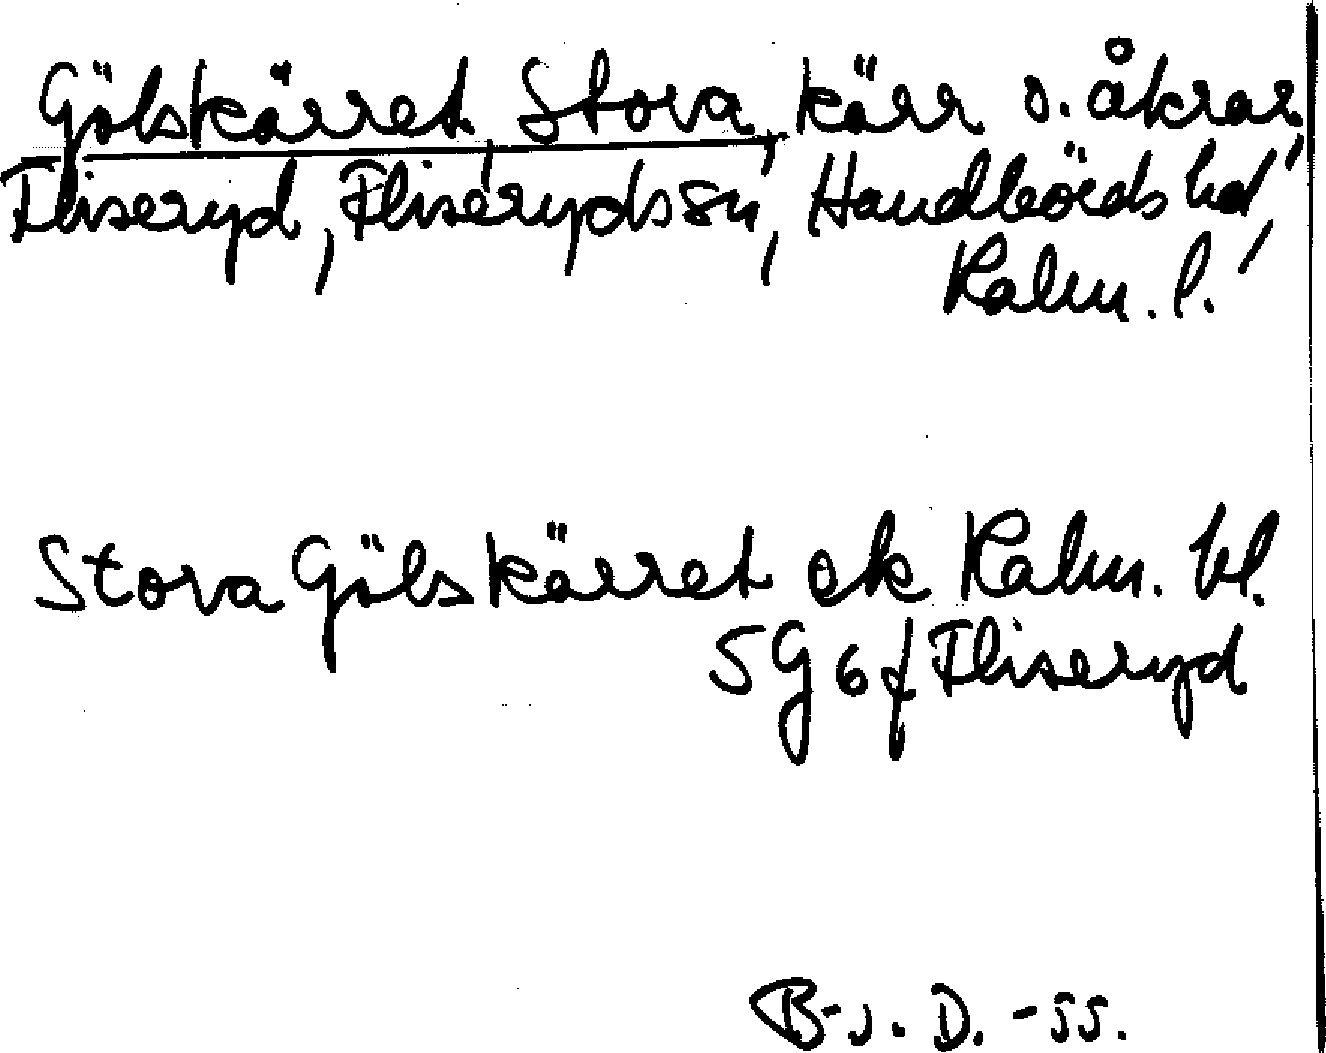 Gölskärret, Stora, kärr o. åkrar,
Fliseryd, Fliseryds sn, Handbörds hd,
Kalm. l.
Stora Gölskärret ek Kalm. bl.
5G 6f Fliseryd
B-J. D. -55.